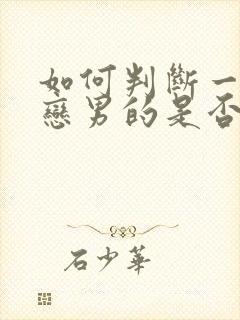 如何判斷一
戀男的是否
石少華